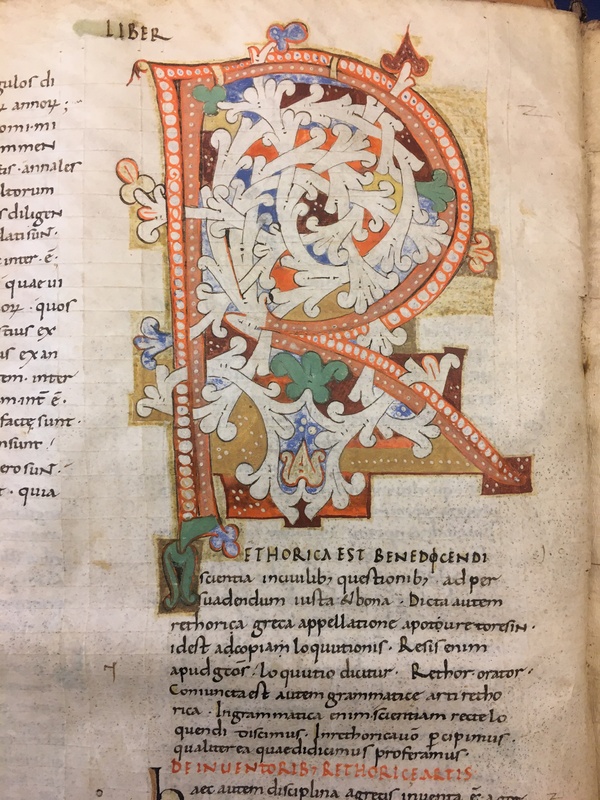 LIBER
gulos di
annoꝝ ;
omi·mi
mmen
tis · annales
ltorum
s diligen
latisūn ·
inter · ē ·
quae ui
oꝝ · quos
stius ex
us ex an
em · inter
m · int̄ ē ·
factę sunt ·
nsunt /
ero suN ·
t · quia
RETHORICA EST BENEDOCENDI
scientia inciuilib; questionib; · ad per
suadendum iusta & bona · Dicta autem
rethorica greca appellatione
idest adcopiam loquutionis · Resis enim
apud / loquutio dicitur · Rethor · orator ·
Coniuncta est autem grammatice arti retho
rica · Ingrammatica enim scientiam recte lo
quendi discimus · Inrethorica p̄cipimus ·
qualiter ea quae didicimus proferamus ·
DE INUENTORIB; RETHORICĘ ARTIS
haec autem disciplina a grecis inuenta ē · a